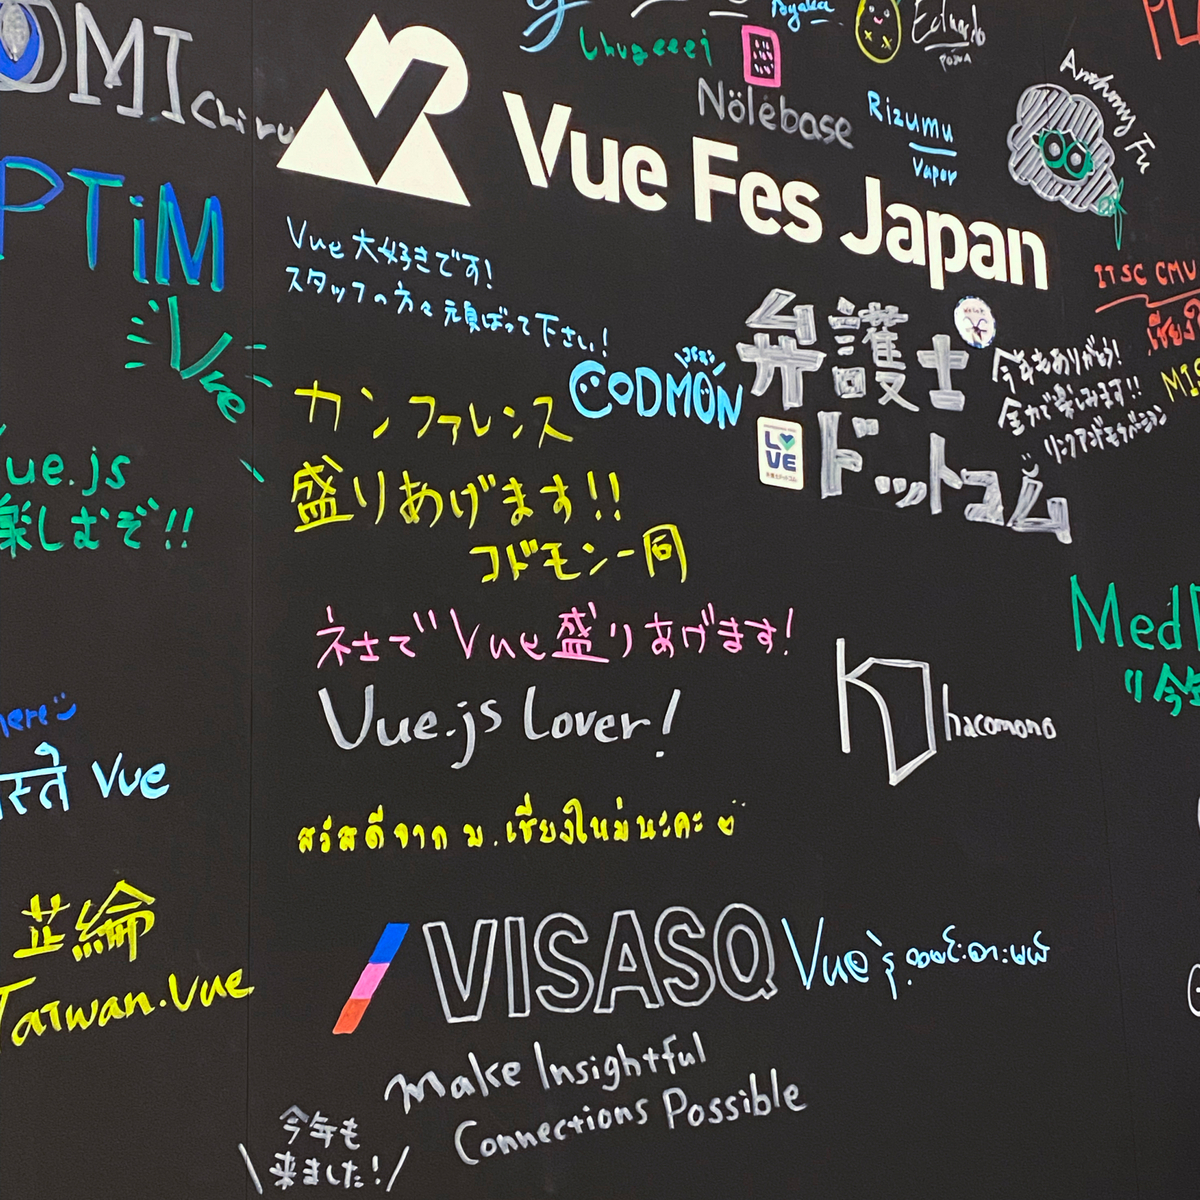 Ayaka
Eduardo
Chugeeei
Nólëbase
Rizumu
Vapor
Anthony Fu
OMI
Chiru
Vue Fes Japan
PTiM
Vue
Vue大好きです!
スタッフの方々頑ばって下さい!
CODMON
カンファレンス
盛りあげます!!
コドモン一同
弁護士
ドットコム
LOVE
今年もありがとう!
全力で楽しみます!!
リンクアンドモチベーション
ITSC CMU
เชียงใ
MIS
ue.js
楽しむぞ!!
ネ土でVue盛りあげます!
Vue.js Lover!
hacomono
Med
今年
here
स्ते Vue
สวัสดีจาก ม.เชียงใหม่นะคะ
芷綸
Taiwan.Vue
VISASQ
Vueနဲ့ ထမင်းစားမယ်
Make Insightful
Connections Possible
今年も
来ました!